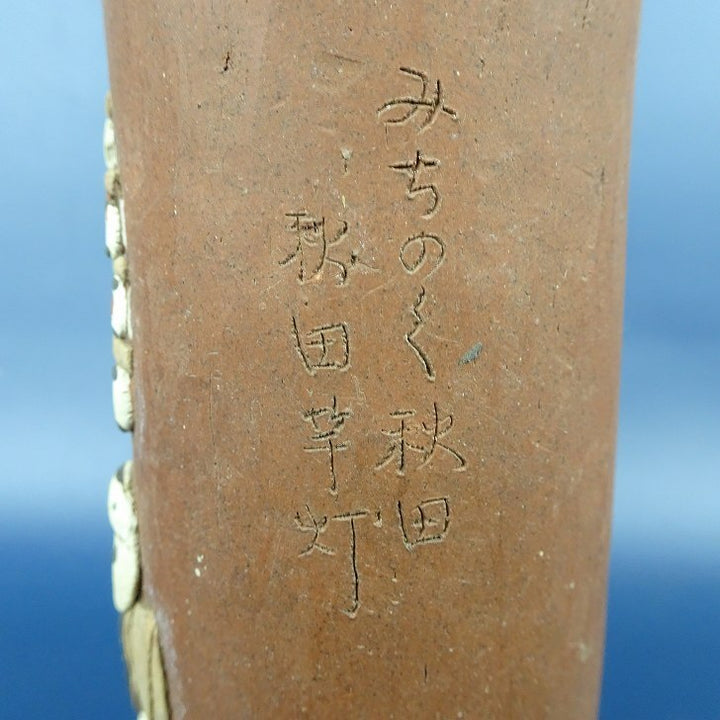 みちのく秋田
秋田竿灯